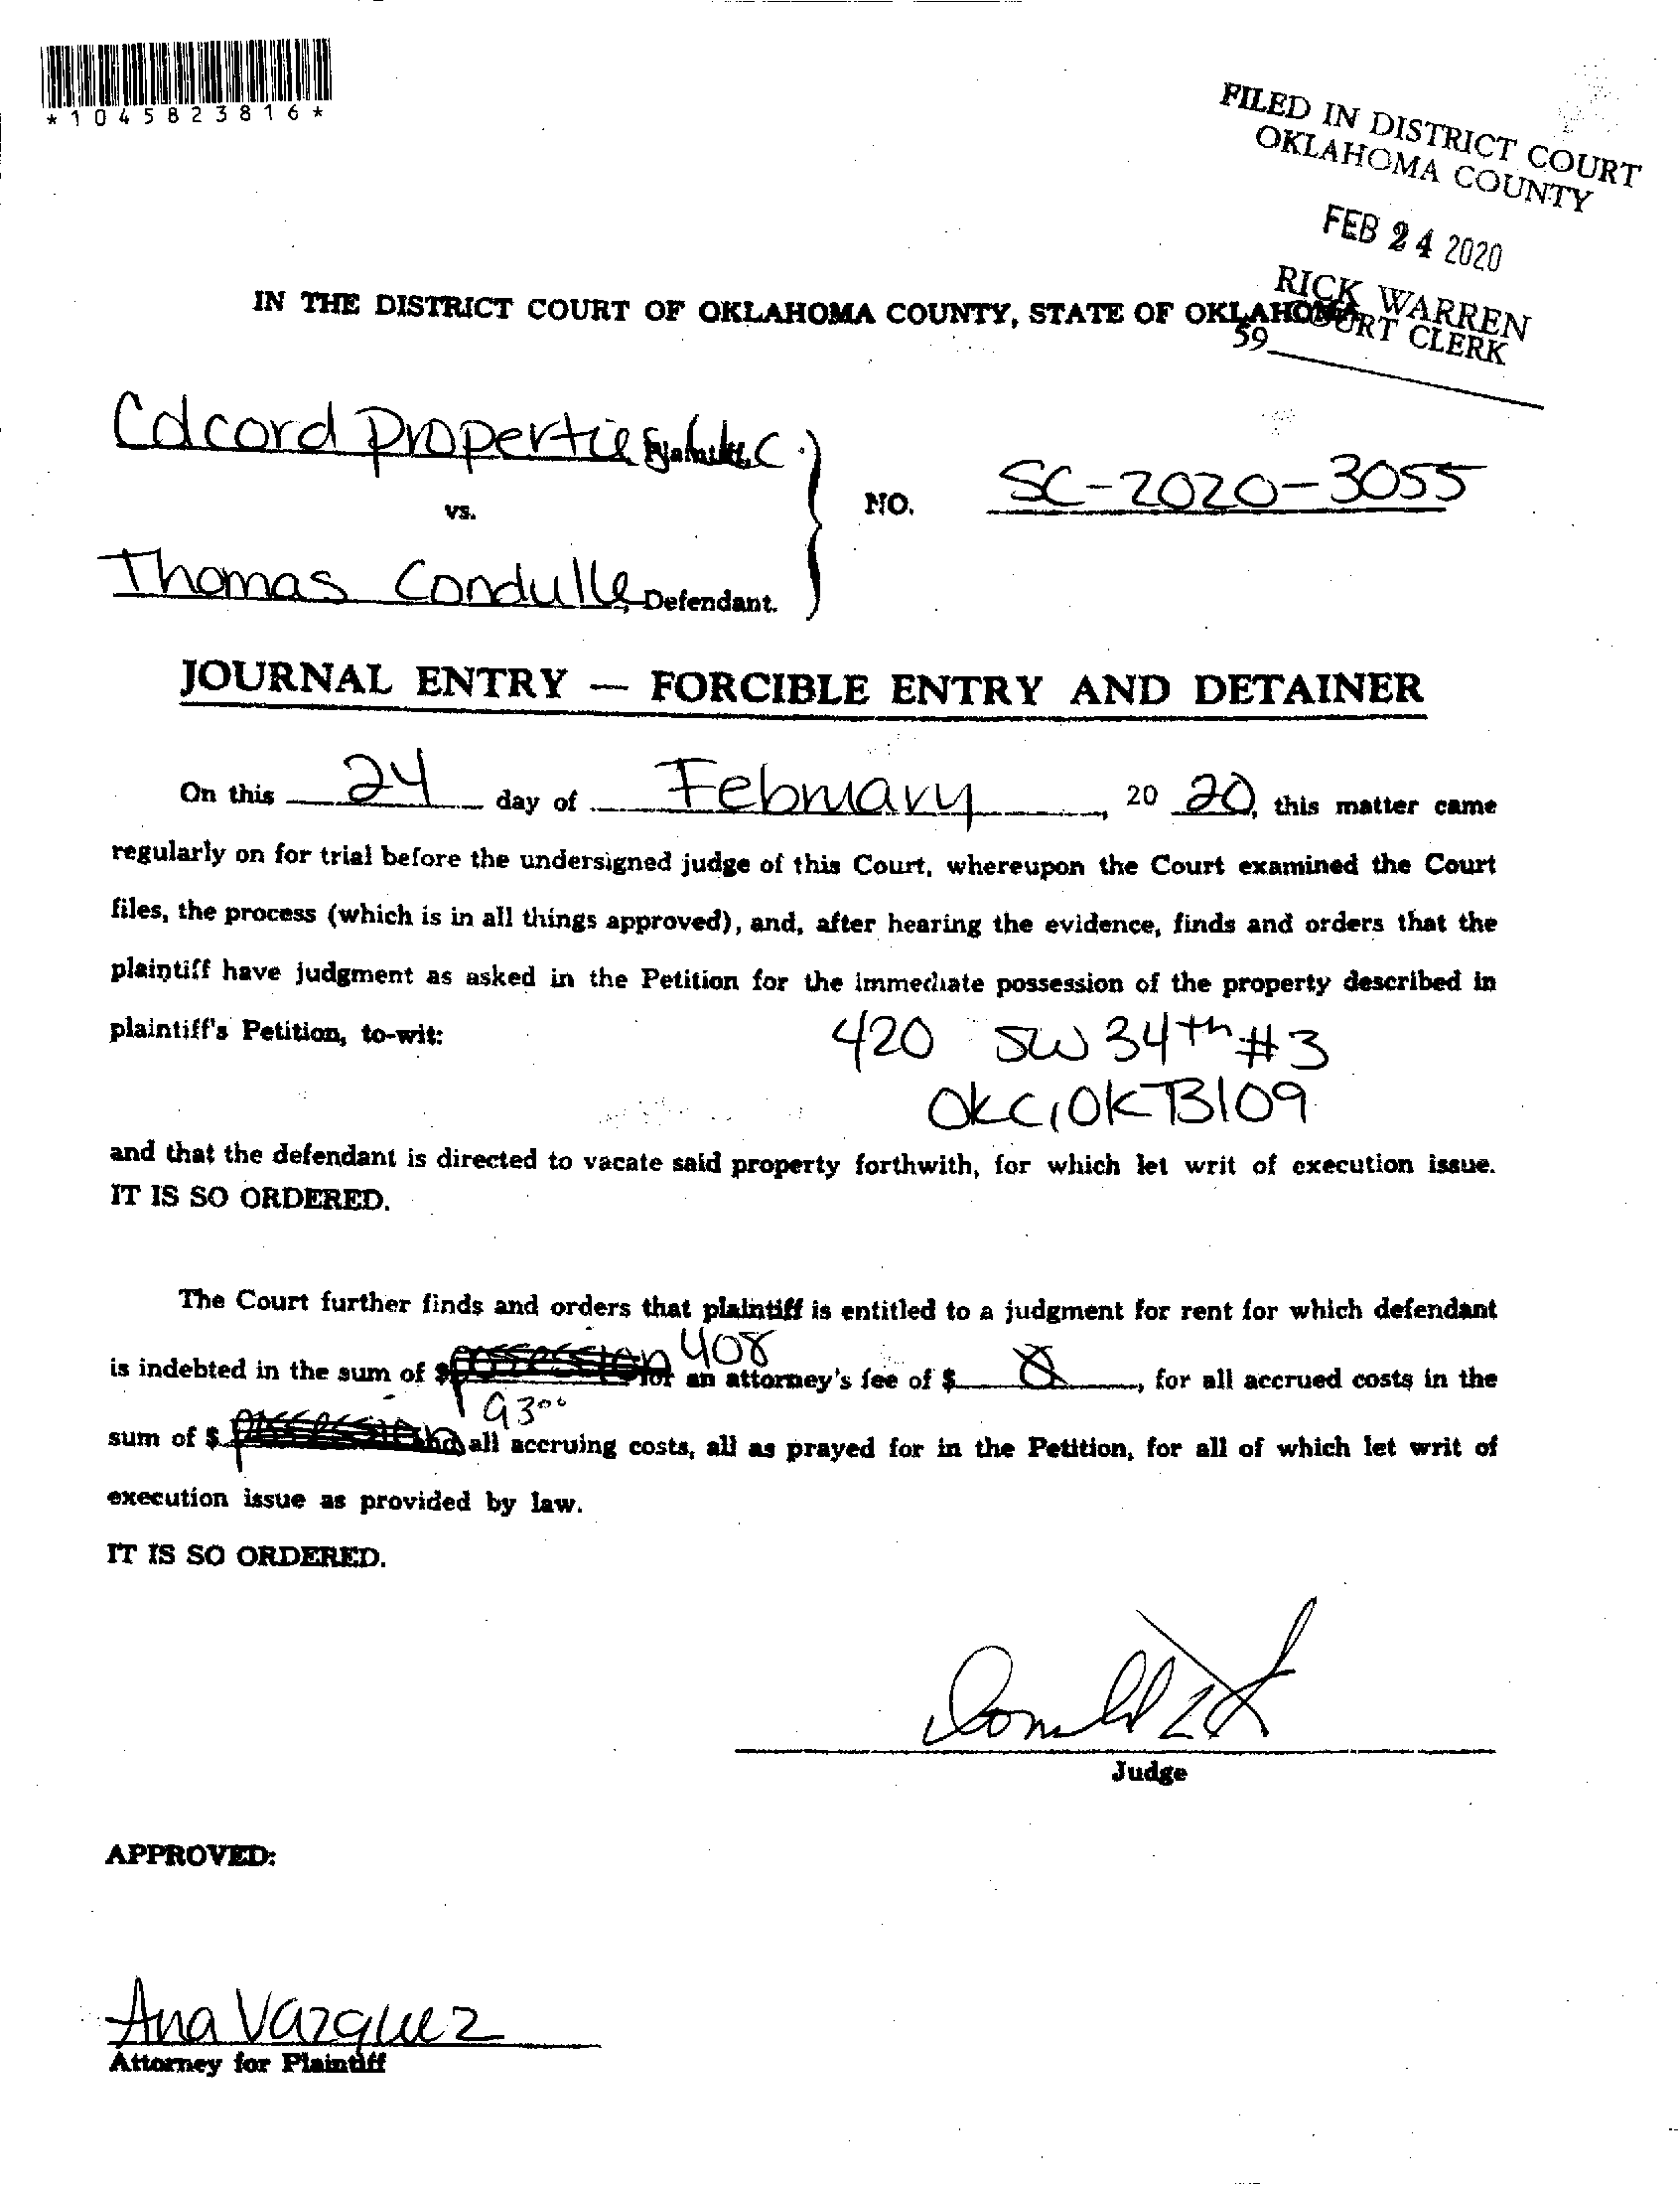 *1045823816*
FILED IN DISTRICT COURT
OKLAHOMA COUNTY
FEB 24 2020
RICK WARREN
COURT CLERK
59
IN THE DISTRICT COURT OF OKLAHOMA COUNTY, STATE OF OKLAHOMA
Colcord Properties LLC
Plaintiff,
vs.
NO. SC-2020-3055
Thomas Condulle, Defendant.
JOURNAL ENTRY — FORCIBLE ENTRY AND DETAINER
On this 24 day of February, 20 20, this matter came
regularly on for trial before the undersigned judge of this Court, whereupon the Court examined the Court
files, the process (which is in all things approved), and, after hearing the evidence, finds and orders that the
plaintiff have judgment as asked in the Petition for the immediate possession of the property described in
plaintiff's Petition, to-wit: 420 SW 34th #3
OKC, OK 73109
and that the defendant is directed to vacate said property forthwith, for which let writ of execution issue.
IT IS SO ORDERED.
The Court further finds and orders that plaintiff is entitled to a judgment for rent for which defendant
408
is indebted in the sum of $ possession for an attorney's fee of $ 0, for all accrued costs in the
93.00
sum of $ possession and all accruing costs, all as prayed for in the Petition, for all of which let writ of
execution issue as provided by law.
IT IS SO ORDERED.
Judge
APPROVED:
Ana Vazquez
Attorney for Plaintiff